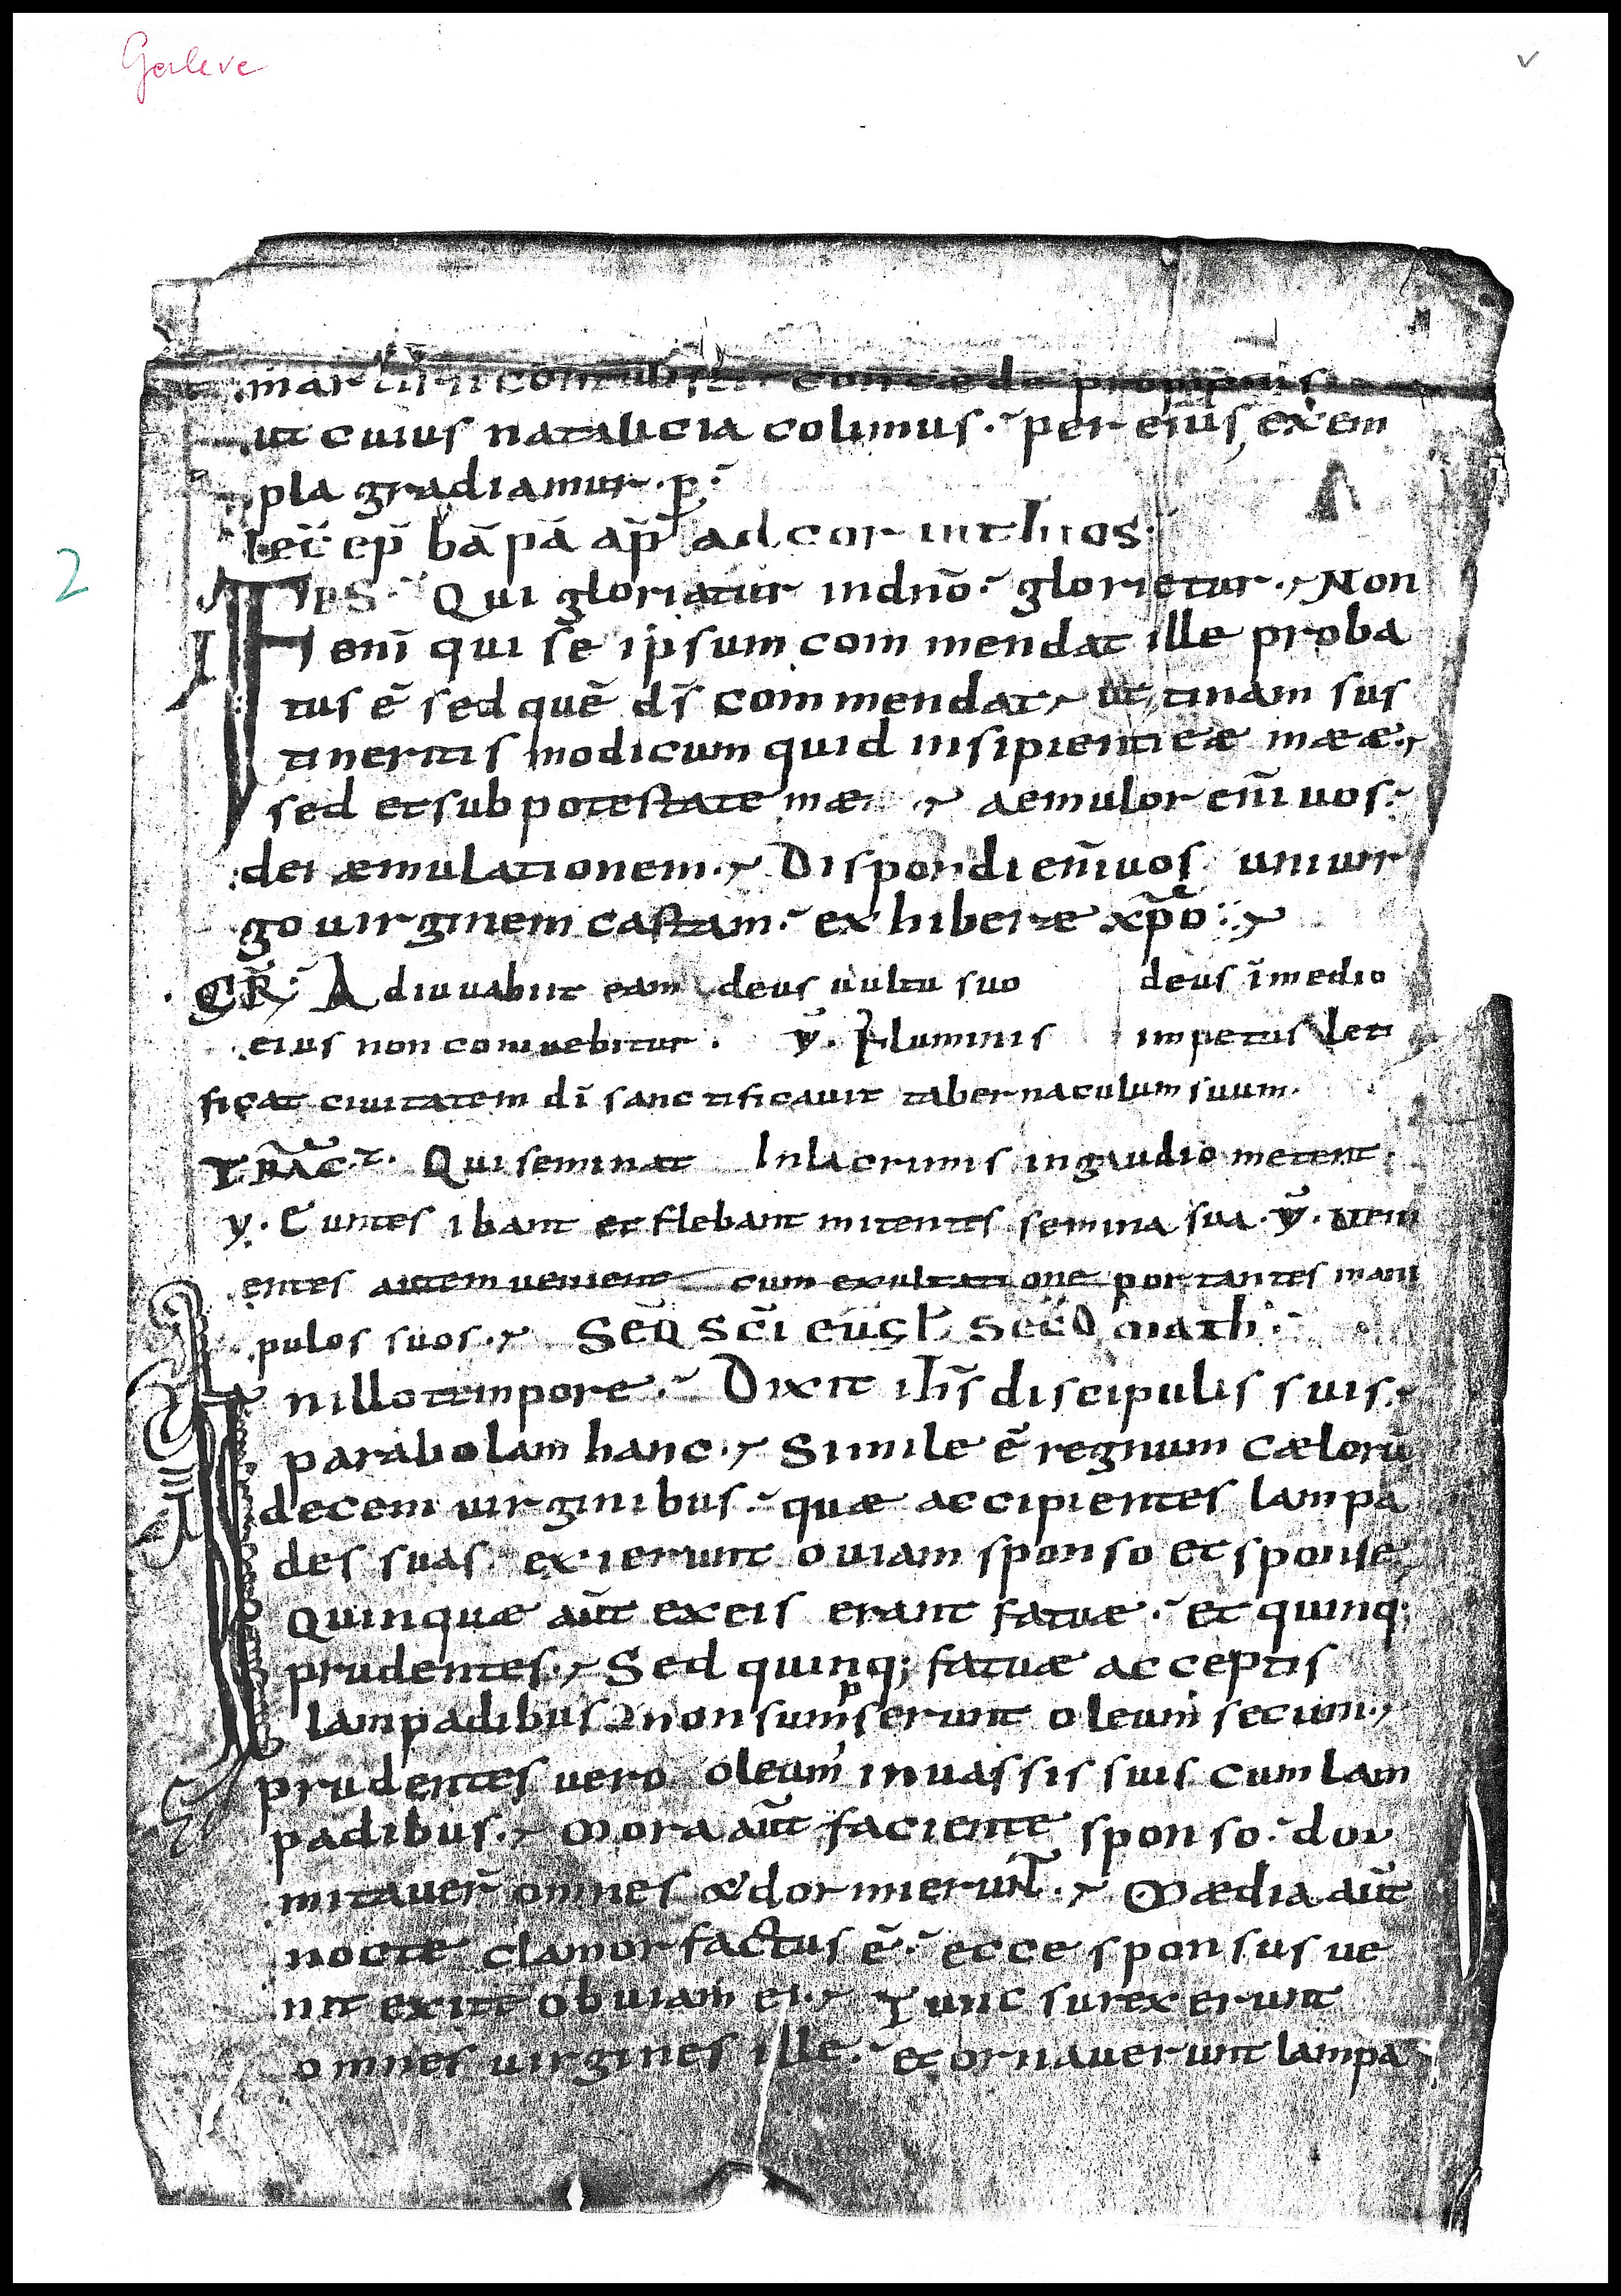 Gerleve
v
martyrii contulisti concæde propitius
ut cuius natalicia colimus. per eius exem
pla gradiamur. p̄.
lec̄ ep̄ bā pā ap̄ ad corinthios.
2
FRS Qui gloriatur in dn̄o. glorietur. Non
enī qui se ipsum commendat ille proba
tus ē sed quē ds̄ commendat. utinam sus
tineritis modicum quid insipientieæ mææ.
sed et subpotestate mæ aemulor enī uos.
dei æmulationem. Dispondi enī uos uni uir
go uirginem castam. exhiberæ xp̄o.
GR̄. Adiuuabit eam deus uultu suo deus ī medio
eius non comuebitur. ℣. Fluminis impetus leti
ficat ciuitatem dī sanctificauit tabernaculum suum.
TRAC̄T. Qui seminat In lacrimis in gaudio metent.
y. Euntes ibant et flebant mitentes semina sua. ℣. ueni
entes autem uenient cum exultatione portantes mani
pulos suos. SEQ̄ SC̄I EŪGL SEC̄D MATH.
In illo tempore. Dixit ih̄s discipulis suis.
parabolam hanc. Simile ē regnum cælorū
decem uirginibus. quæ accipientes lampa
des suas. exierunt ouiam sponso et sponse
Quinquæ aūt ex eis erant fatuæ. et quinq;
prudentes. Sed quinq; fatuæ acceptis
lampadibus non sumpserunt oleum secum.
prudentes uero oleum in uassis suis cum lam
padibus. Mora aūt faciente sponso. dor
mitauer̄ omnes & dormierunt. Mædia aūt
nocte clamor factus ē. ecce sponsus ue
nit exite obuiam ei. Tunc surexerunt
omnes uirgines ille. et ornauerunt lampa